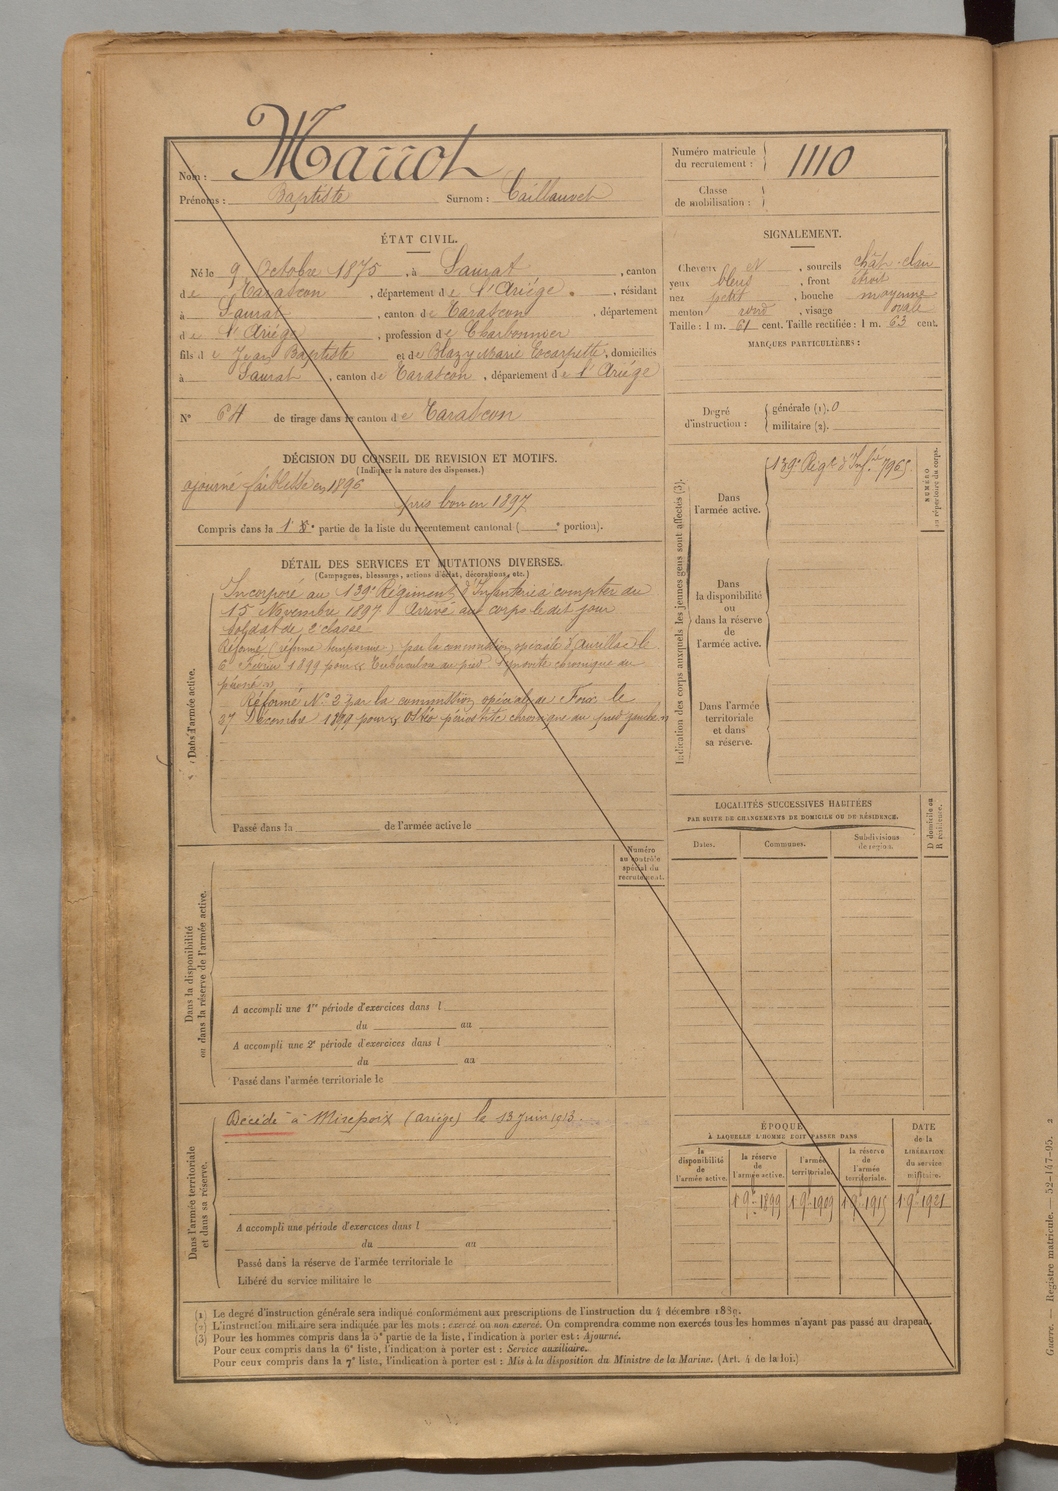 Nom : Marrot
Prénoms : Baptiste Surnom : Caillauvet
Numéro matricule du recrutement : 1110
Classe de mobilisation :
ÉTAT CIVIL.
Né le 9 Octobre 1875, à Saurat, canton
de Tarascon, département de l'Ariége, résidant
à Saurat, canton de Tarascon, département
de l'Ariége, profession de Charbonnier
fils de Jean Baptiste et de Blazy Marie Escarpette, domiciliés
à Saurat, canton de Tarascon, département de l'Ariége
N° 64 de tirage dans le canton de Tarascon
SIGNALEMENT.
Cheveux N, sourcils chât-clair
yeux bleus, front étroit
nez petit, bouche moyenne
menton rond, visage ovale
Taille : 1 m. 61 cent. Taille rectifiée : 1 m. 63 cent.
MARQUES PARTICULIÈRES :
Degré d'instruction :
générale (1). 0
militaire (2).
DÉCISION DU CONSEIL DE REVISION ET MOTIFS.
(Indiquer la nature des dispenses.)
ajourné faiblesse en 1896
pris bon en 1897
Compris dans la 1e partie de la liste du recrutement cantonal ( e portion).
DÉTAIL DES SERVICES ET MUTATIONS DIVERSES.
(Campagnes, blessures, actions d'éclat, décorations, etc.)
Dans l'armée active.
Incorporé au 139e Régiment d'Infanterie à compter du
15 Novembre 1897 Arrivé au corps le dit jour
soldat de 2e classe
Réformé (réforme temporaire) par la commission spéciale d'Aurillac le
6 Février 1899 pour
Réformé No 2 par la commission spéciale de Foix le
27 Décembre 1899 pour Ostéo périostite chronique au pied gauche
Passé dans la de l'armée active le
Indication des corps auxquels les jeunes gens sont affectés (3).
Dans l'armée active.
139e Régt d'Infie 7965
NUMÉRO au répertoire du corps.
Dans la disponibilité ou dans la réserve de l'armée active.
Dans l'armée territoriale et dans sa réserve.
LOCALITÉS SUCCESSIVES HABITÉES
PAR SUITE DE CHANGEMENTS DE DOMICILE OU DE RÉSIDENCE.
Dates. Communes. Subdivisions de région. D domicile ou R résidence.
Dans la disponibilité ou dans la réserve de l'armée active.
Numéro au contrôle spécial du recrutement.
A accompli une 1re période d'exercices dans l
du au
A accompli une 2e période d'exercices dans l
du au
Passé dans l'armée territoriale le
Dans l'armée territoriale et dans sa réserve.
Décédé à Mirepoix (Ariége) le 13 Juin 1913
A accompli une période d'exercices dans l
du au
Passé dans la réserve de l'armée territoriale le
Libéré du service militaire le
ÉPOQUE
À LAQUELLE L'HOMME DOIT PASSER DANS
la disponibilité de l'armée active.
la réserve de l'armée active.
l'armée territoriale.
la réserve de l'armée territoriale.
DATE de la LIBÉRATION du service militaire.
1 9bre 1899 1 9bre 1909 1 9bre 1915 1 9bre 1921
(1) Le degré d'instruction générale sera indiqué conformément aux prescriptions de l'instruction du 4 décembre 1889.
(2) L'instruction militaire sera indiquée par les mots : exercé ou non exercé. On comprendra comme non exercés tous les hommes n'ayant pas passé au drapeau.
(3) Pour les hommes compris dans la 5e partie de la liste, l'indication à porter est : Ajourné.
Pour ceux compris dans la 6e liste, l'indication à porter est : Service auxiliaire.
Pour ceux compris dans la 7e liste, l'indication à porter est : Mis à la disposition du Ministre de la Marine. (Art. 4 de la loi.)
Guerre. — Registre matricule. — 52-147-95. 2